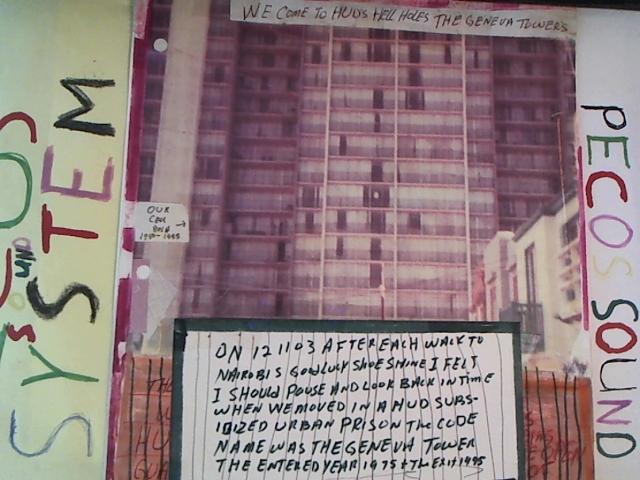 WE COME TO HUD'S HELL HOLES THE GENEVA TOWERS
SYSTEM
SOUND
PECOS SOUND
OUR
CELL
ON 121103 AFTER EACH WALK TO
NAIROBIS GOODLUCK SHOESHINE I FELT
I SHOULD POUSE AND LOOK BACK IN TIME
WHEN WE MOVED IN A HUD SUBS-
IDIZED URBAN PRISON THE CODE
NAME WAS THE GENEVA TOWER
THE ENTERED YEAR 1975 + THE EXIT 1995